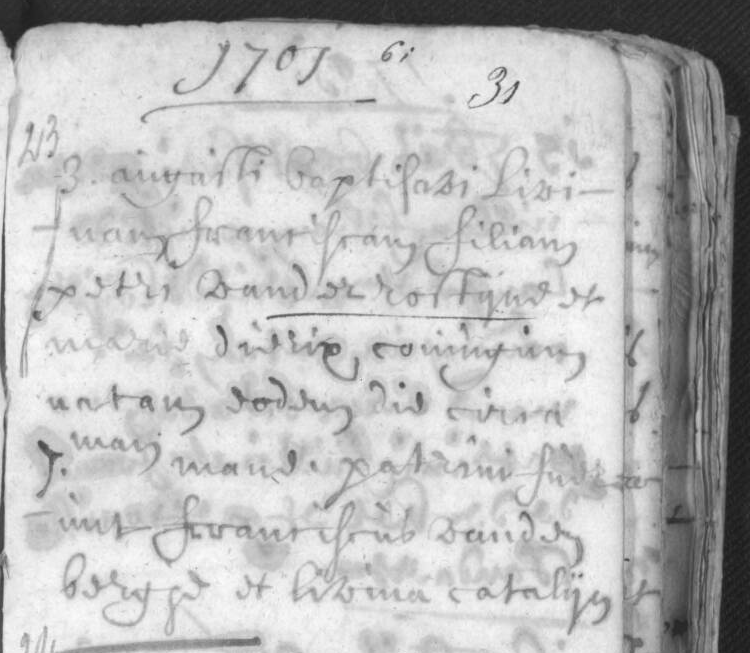 1701 61
31
23
3. augusti baptisavi Livi-
nam franciscam filiam
petri vander rostijne et
marie dierix coniugum
natam eodem die circa
mane. patrini fuer
unt franciscus vanden
bergge et livina catalijn
24